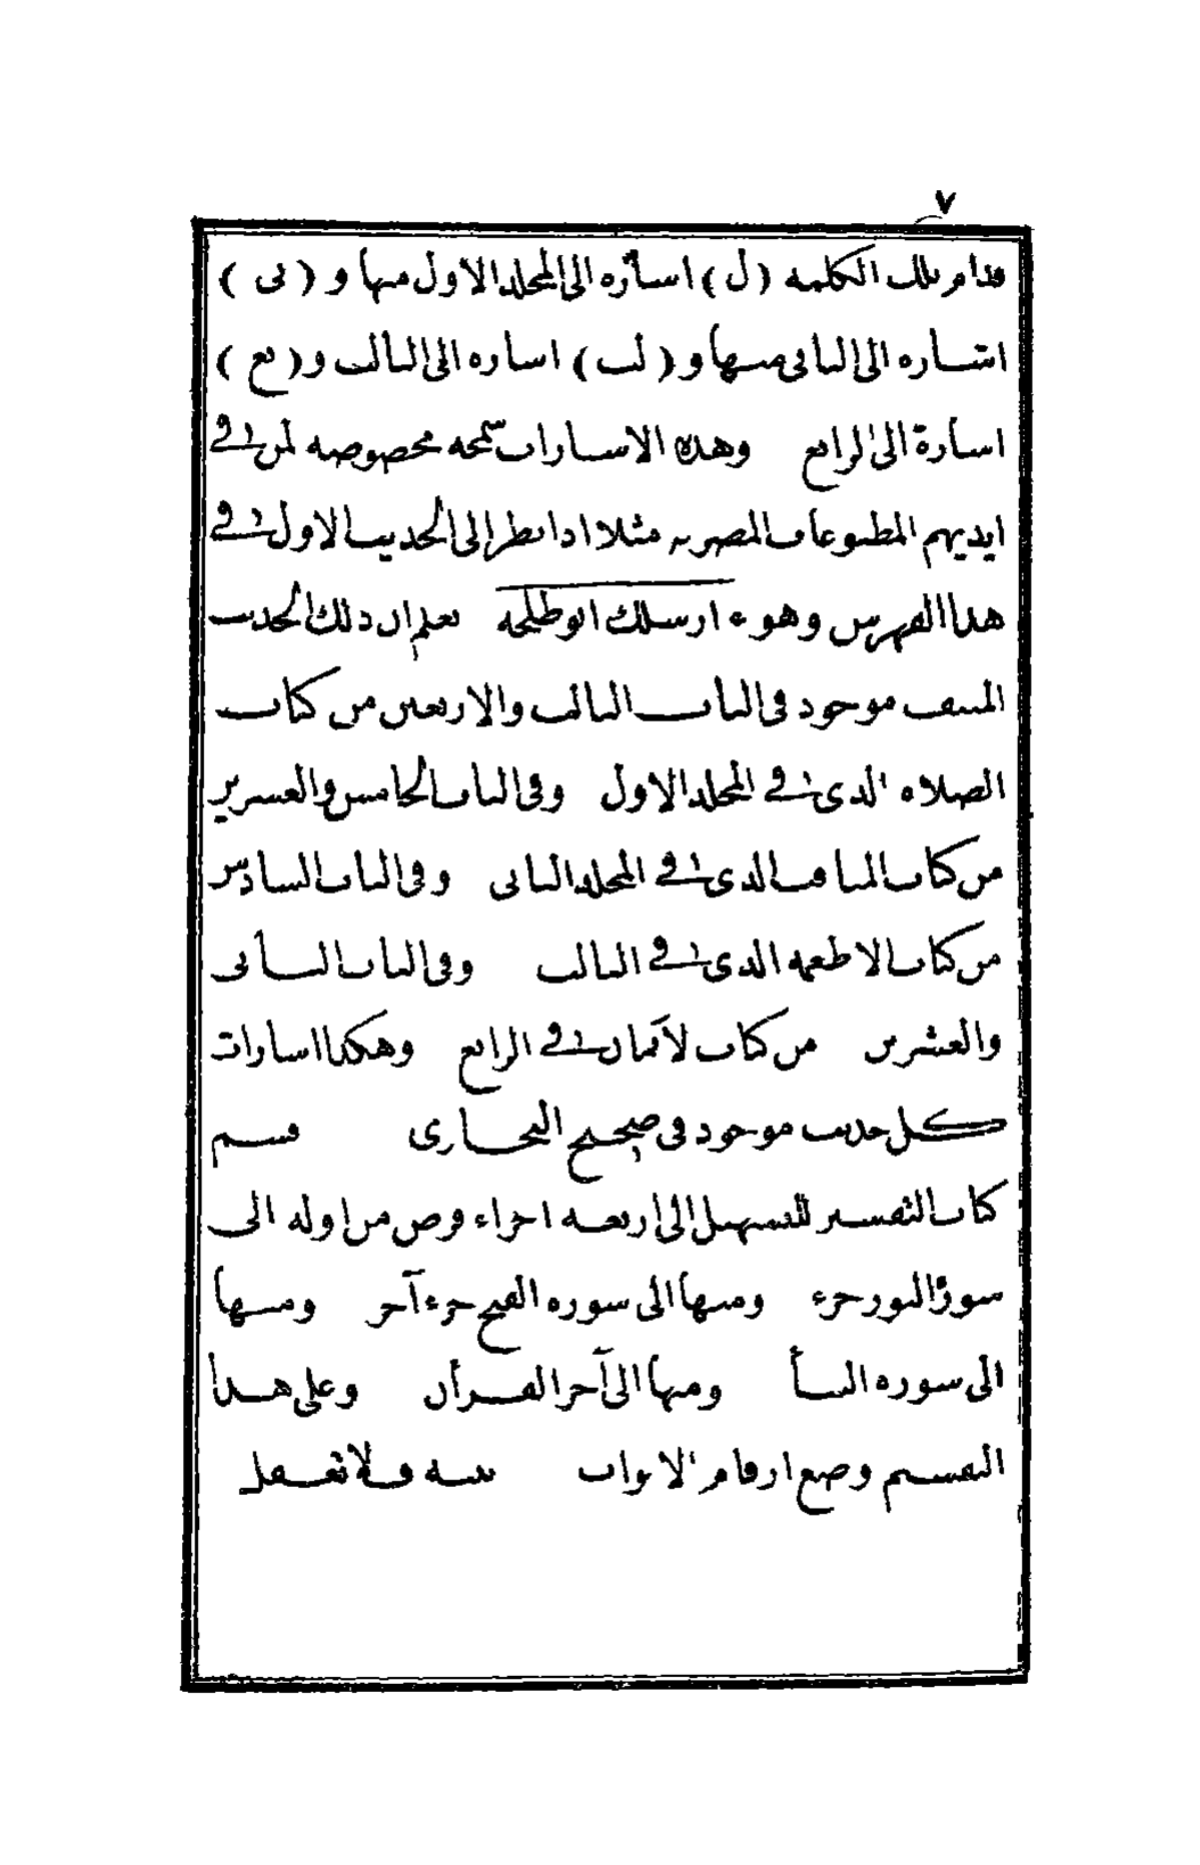 ٧
قدام تلك الكلمة (ل) اشارة الى المجلد الاول منها و (نى)
اشارة الى الثانى منها و (لث) اشارة الى الثالث و (بع)
اشارة الى الرابع وهذه الاشارات سمحة مخصوصة لمن فى
ايديهم المطبوعات المصرية مثلا اذا نظر الى الحديث الاول فى
هذا الفهرس وهو ء ارسلك ابو طلحة تعلم ان ذلك الحديث
المنيف موجود فى الباب الثالث والاربعين من كتاب
الصلاة الذى فى المجلد الاول وفى الباب الخامس والعشرين
من كتاب المناقب الذى فى المجلد الثانى وفى الباب السادس
من كتاب الاطعمة الذى فى الثالث وفى الباب الثانى
والعشرين من كتاب الايمان فى الرابع وهكذا اشارات
كل حديث موجود فى صحيح البخارى قسم
كتاب التفسير للتسهيل الى اربعة اجزاء فرض من اوله الى
سورة النور جزء ومنها الى سورة الفتح جزء آخر ومنها
الى سورة النبأ ومنها الى آخر القرأن وعلى هذا
التقسيم وضع ارقام الابواب تنبه فلا تغفل